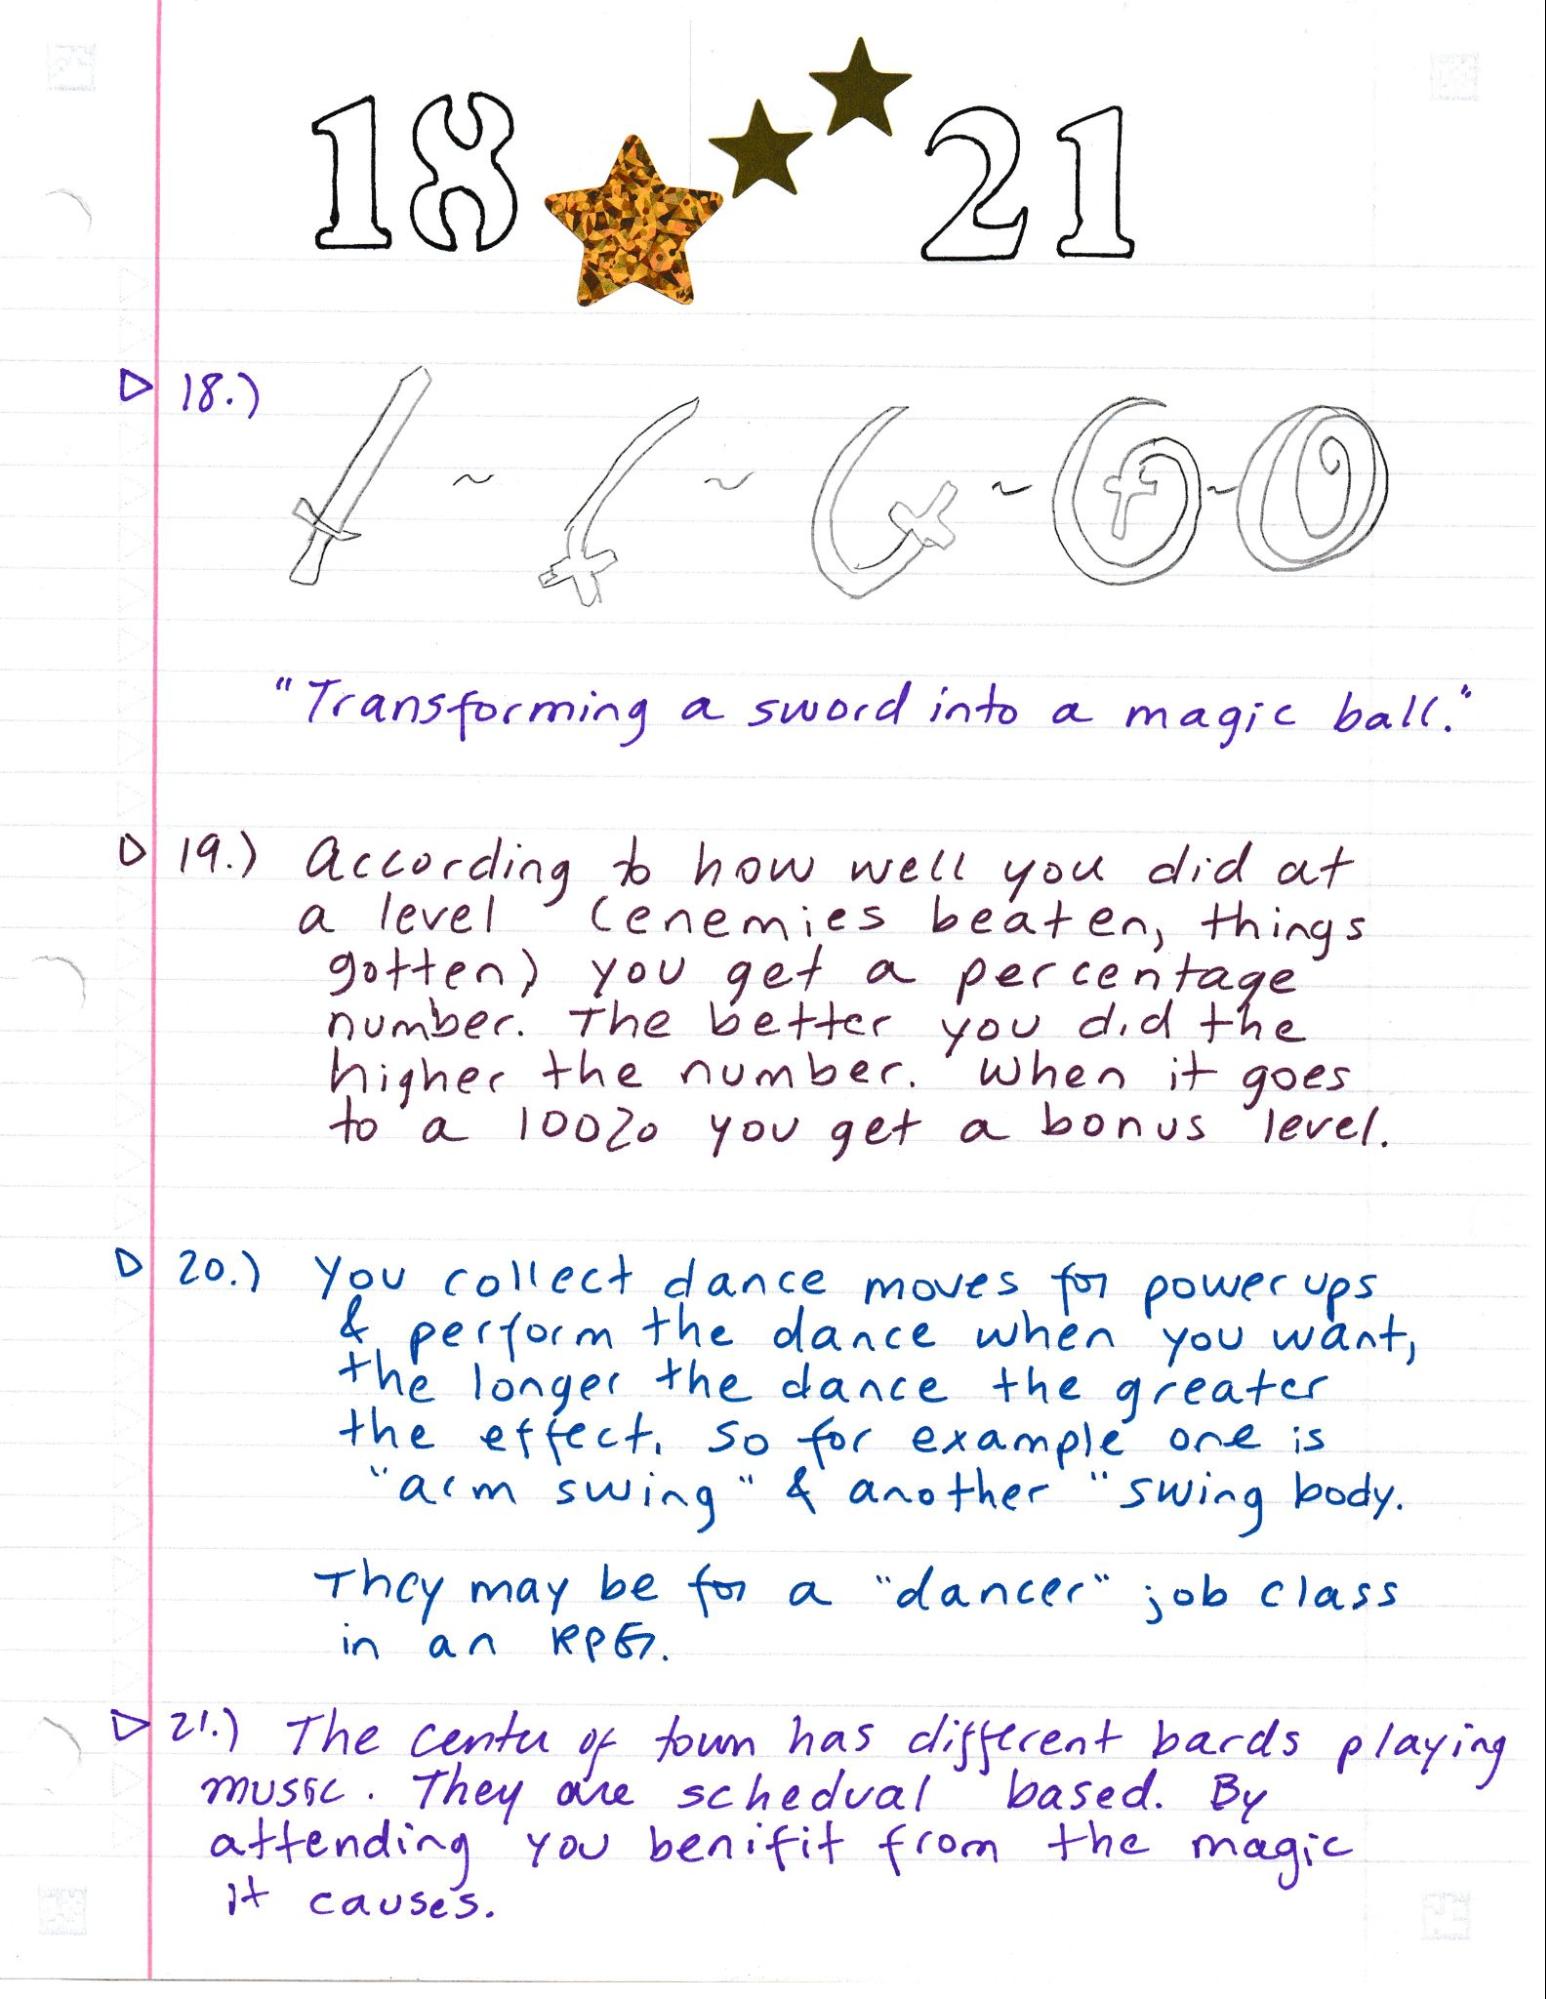 18 21
18.)
"Transforming a sword into a magic ball."
19.) According to how well you did at
a level (enemies beaten, things
gotten) you get a percentage
number. The better you did the
higher the number. When it goes
to a 100% you get a bonus level.
20.) You collect dance moves for power ups
& perform the dance when you want,
the longer the dance the greater
the effect. So for example one is
"arm swing" & another "swing body.
They may be for a "dancer" job class
in an RPG.
21.) The center of town has different bards playing
music. They are schedual based. By
attending you benifit from the magic
it causes.